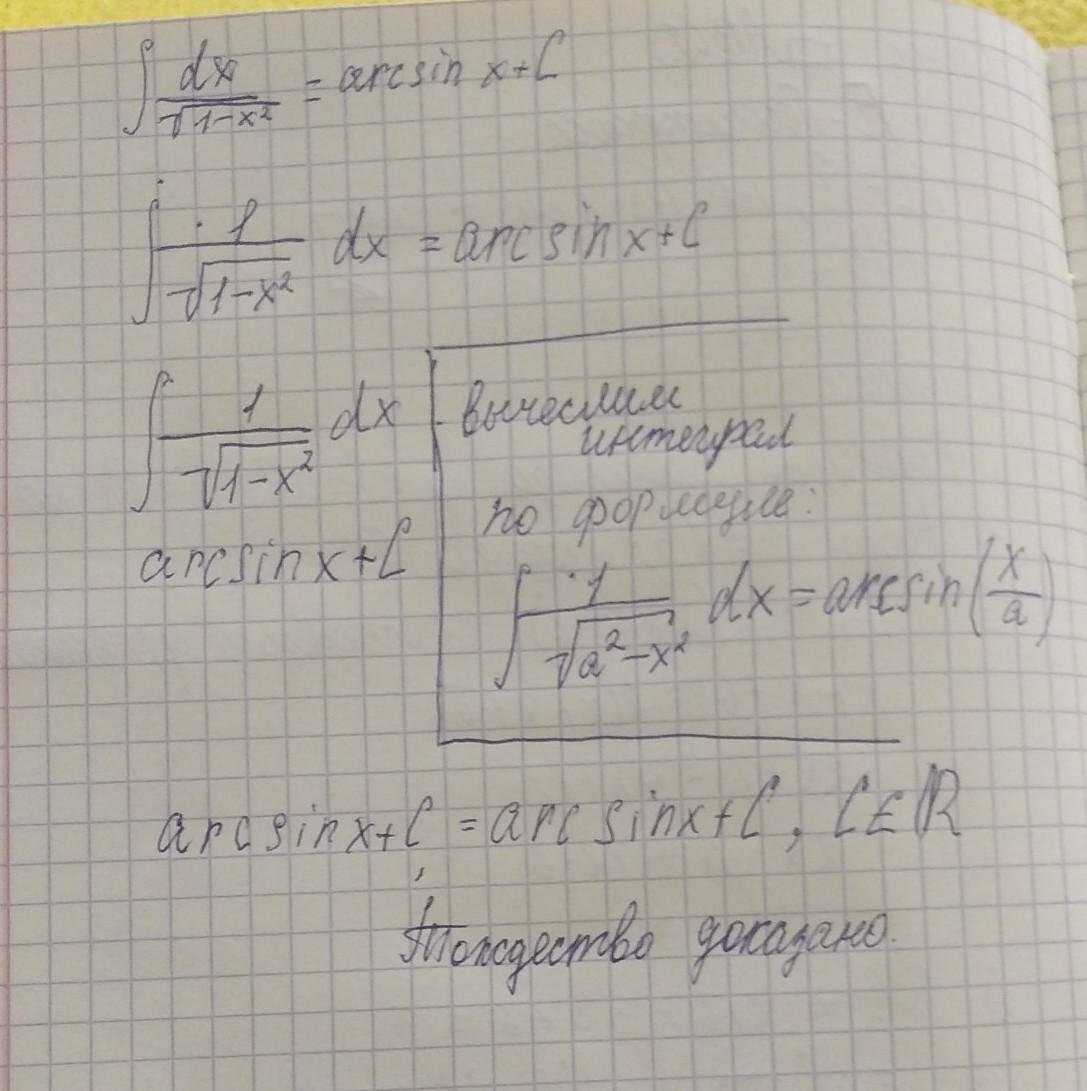 ∫ dx/√(1-x²) = arcsin x+C
∫ 1/√(1-x²) dx = arcsin x+C
∫ 1/√(1-x²) dx
arcsin x+C
вычеслим
интеграл
по формуле:
∫ 1/√(a²-x²) dx = arcsin(x/a)
arcsin x+C = arcsin x+C, C∈ℝ
Тождество доказано.